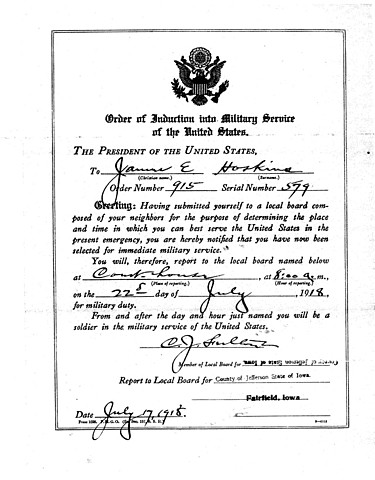 Order of Induction into Military Service
of the United States.
THE PRESIDENT OF THE UNITED STATES,
To E Hoskins
(Christian name.) (Surname.)
Order Number 915 Serial Number 599
Greeting: Having submitted yourself to a local board com-
posed of your neighbors for the purpose of determining the place
and time in which you can best serve the United States in the
present emergency, you are hereby notified that you have now been
selected for immediate military service.
You will, therefore, report to the local board named below
at Court house, at 8:00 a.m.,
(Place of reporting.) (Hour of reporting.)
on the 22 day of July, 1918,
for military duty.
From and after the day and hour just named you will be a
soldier in the military service of the United States.
C. J.
Member of Local Board for County of Jefferson State of Iowa
Report to Local Board for County of Jefferson State of Iowa.
Fairfield, Iowa
Date July 17, 1918.
Form 1028, P.M.G.O.